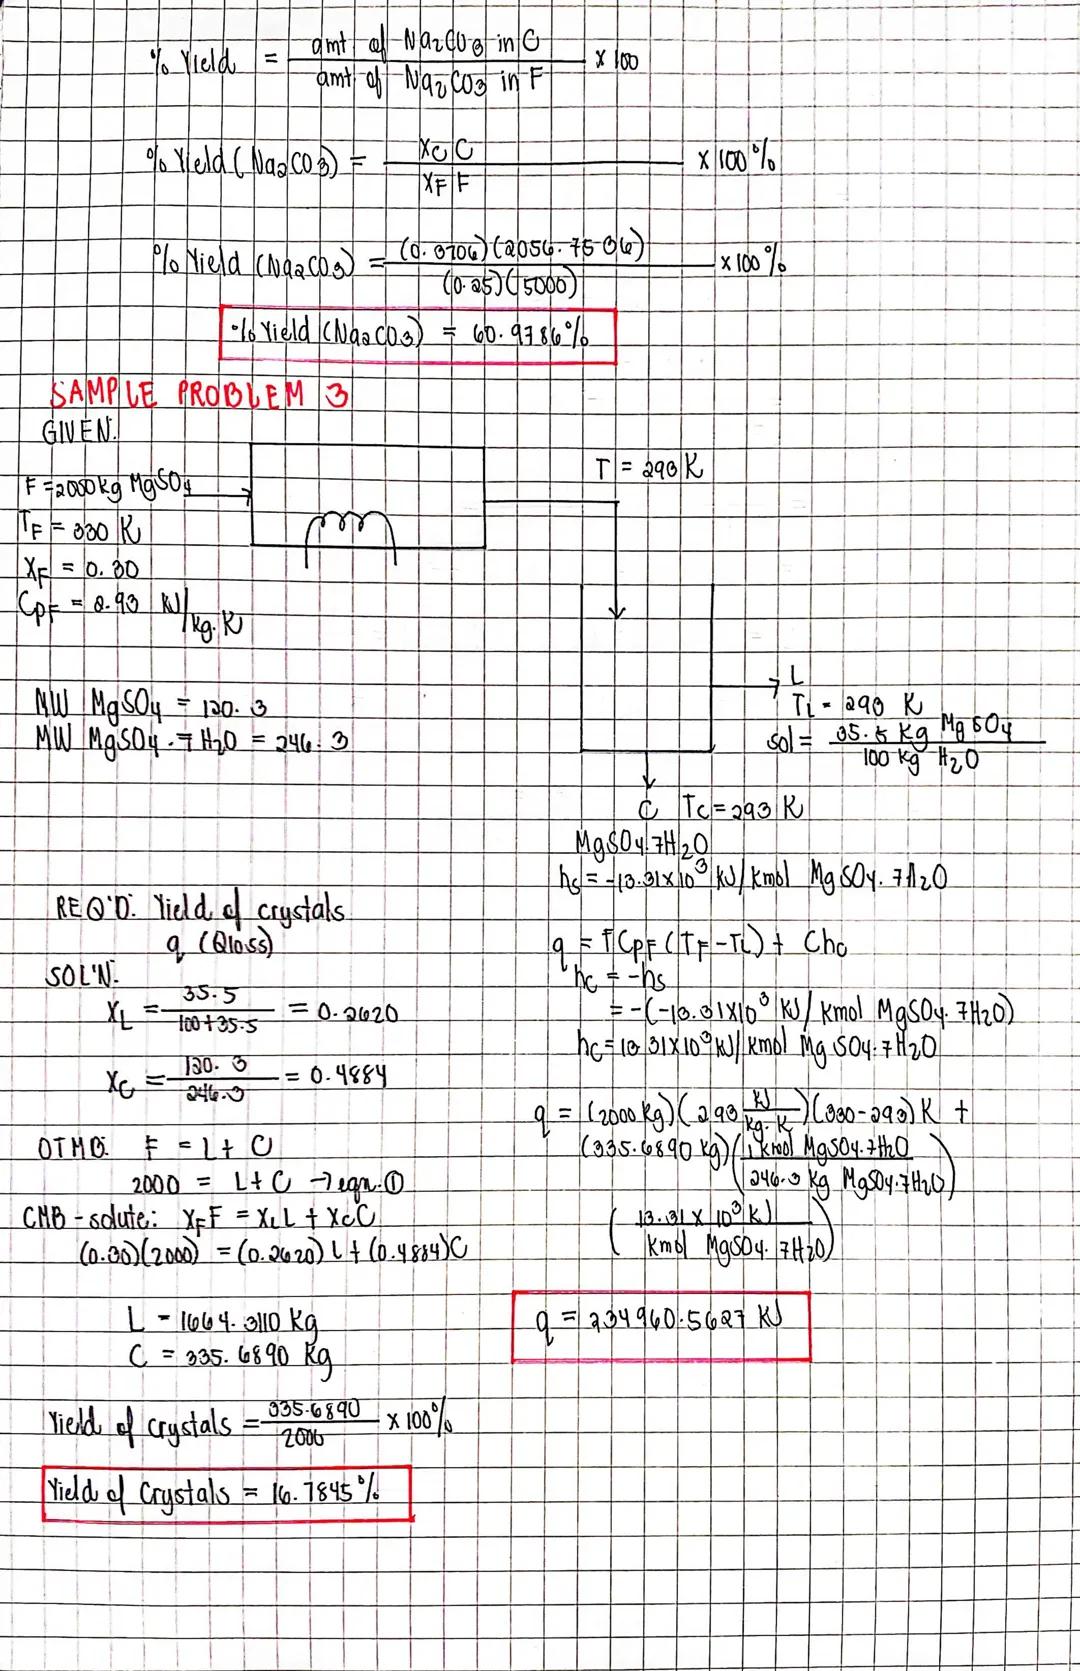 % Yield = amt of Na2CO3 in C / amt of Na2CO3 in F x 100
% Yield (Na2CO3) = XC C / XF F x 100%
% Yield (Na2CO3) = (0.3706)(2056.7536) / (0.25)(5000) x 100%
% Yield (Na2CO3) = 60.9786%
SAMPLE PROBLEM 3
GIVEN:
F = 2000 kg MgSO4
TF = 330 K
XF = 0.30
CPF = 2.93 KJ/kg.K
T = 293 K
MW MgSO4 = 120.3
MW MgSO4.7H2O = 246.3
L
TL = 293 K
sol = 35.5 kg MgSO4 / 100 kg H2O
C TC = 293 K
MgSO4.7H2O
hs = -13.31x10^3 KJ/kmol MgSO4.7H2O
REQ'D: Yield of crystals
q (Qloss)
SOL'N:
XL = 35.5 / 100+35.5 = 0.2620
XC = 120.3 / 246.3 = 0.4884
OTMB: F = L + C
2000 = L + C → eqn. ①
CMB - solute: XFF = XLL + XCC
(0.30)(2000) = (0.2620)L + (0.4884)C
L = 1664.3110 kg
C = 335.6890 kg
Yield of crystals = 335.6890 / 2000 x 100%
Yield of Crystals = 16.7845%
q = FCPF(TF-TL) + Chc
hc = -hs
= -(-13.31x10^3 KJ/kmol MgSO4.7H2O)
hc = 13.31x10^3 KJ/kmol MgSO4.7H2O
q = (2000 kg)(2.93 KJ/kg.K)(330-293)K +
(335.6890 kg)(1 kmol MgSO4.7H2O / 246.3 kg MgSO4.7H2O)
(13.31 x 10^3 KJ / kmol MgSO4.7H2O)
q = 234960.5627 KJ